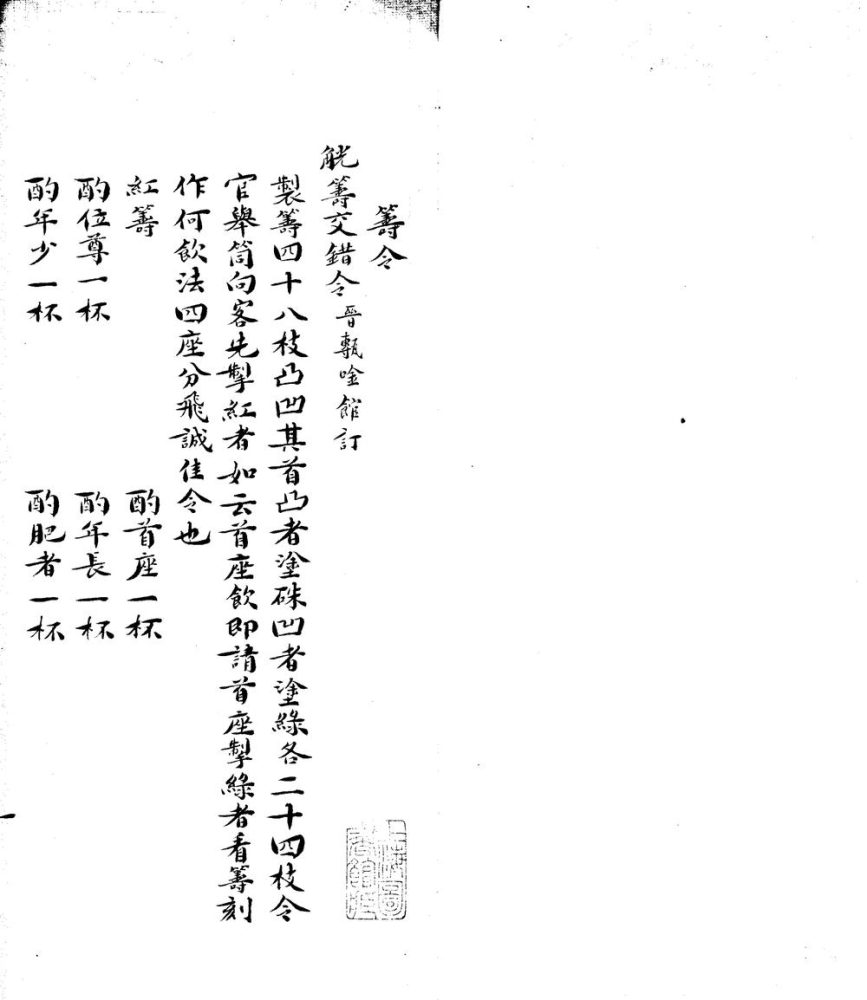 籌令
觥籌交錯令 晉甎唫館訂
製籌四十八枝凸凹其首凸者塗硃凹者塗綠各二十四枝令
官舉筒向客先掣紅者如云首座飲即請首座掣綠者看籌刻
作何飲法四座分飛誠佳令也
紅籌 酌首座一杯
酌位尊一杯 酌年長一杯
酌年少一杯 酌肥者一杯
上海圖
書館藏